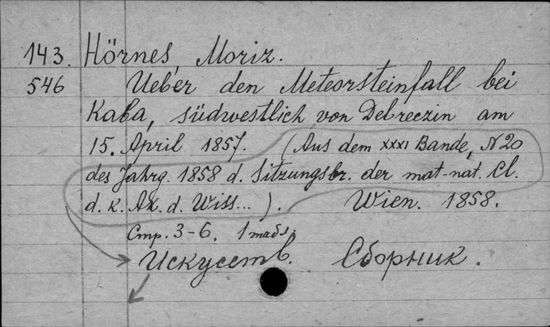 143. Hörnes, Moriz.
546 Ueber den Meteorsteinfall bei
Kaba, südwestlich von Debreczin am
15. April 1857. (Aus dem XXXI Bande, N 20
des Jahrg. 1858 d. Sitzungsbr. der mat-nat. Cl.
d. k. Ak. d. Wiss...). Wien. 1858.
Стр. 3-6. 1 табл.
Искусств. Сборник.